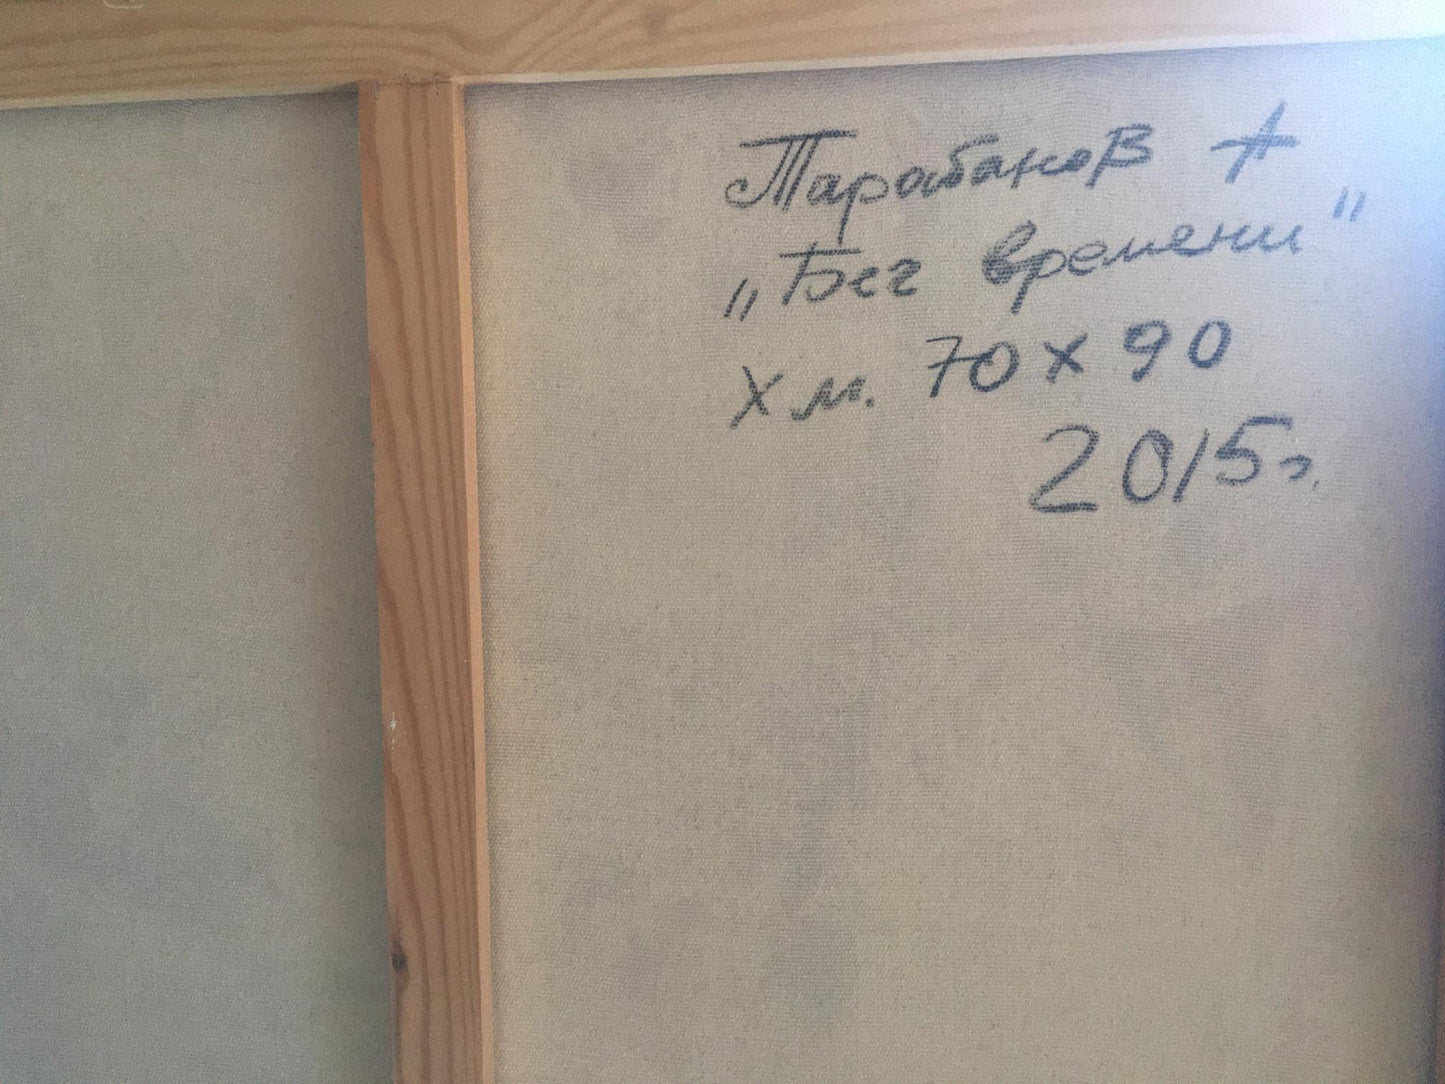 Тарабанов А
„Бег времени"
х м. 70 х 90
2015г.